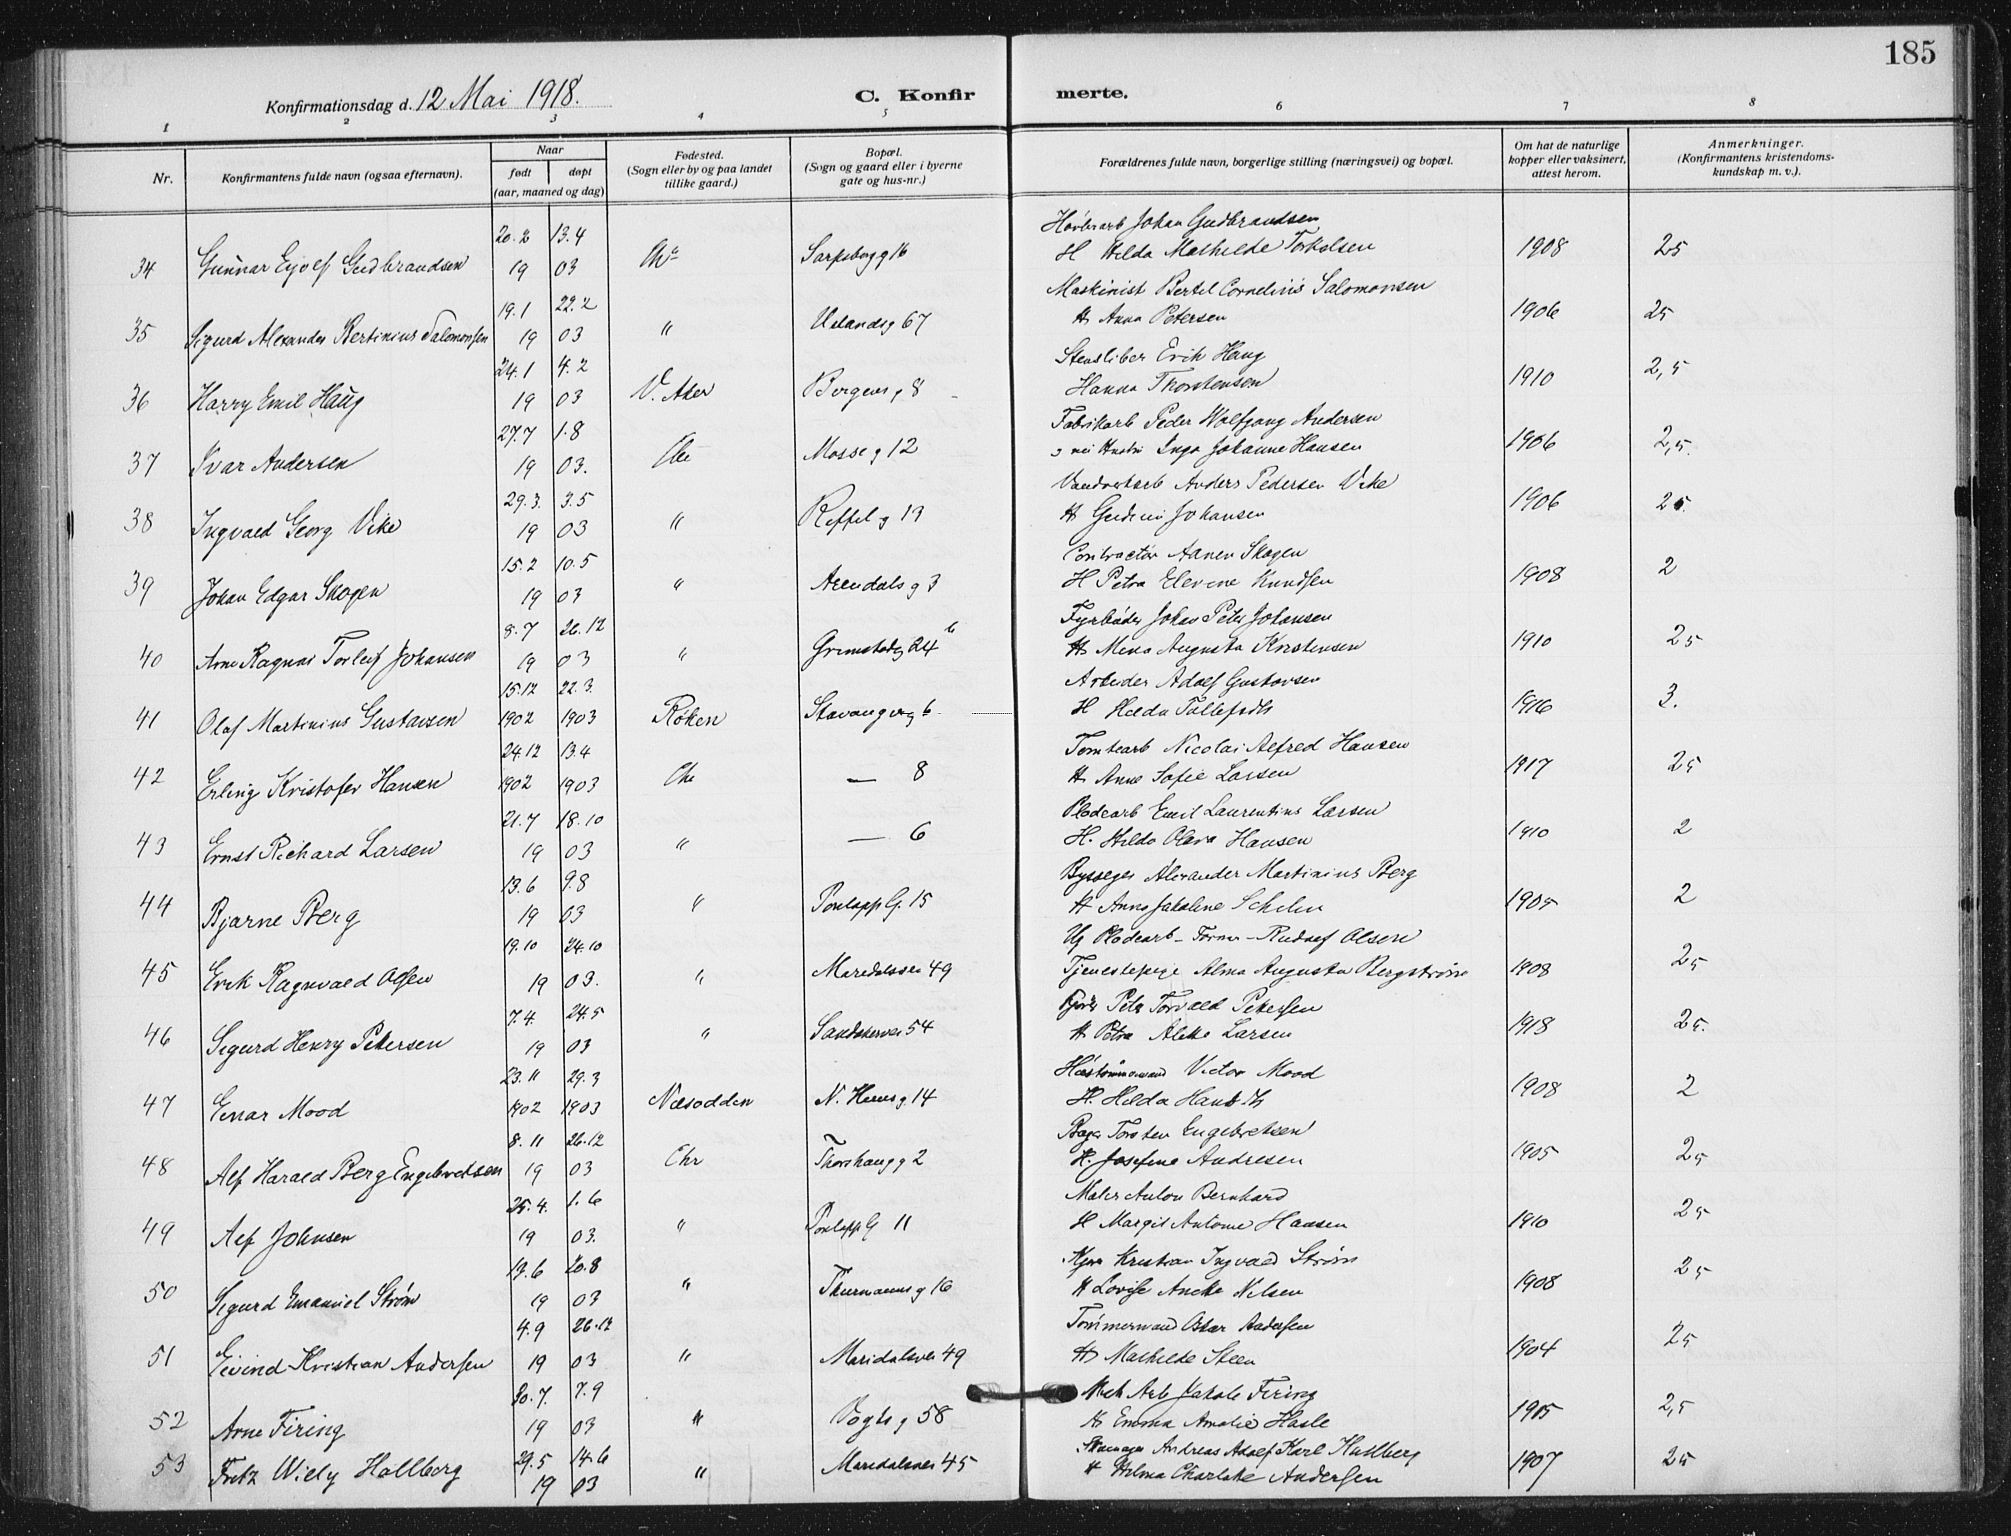 185
Konfirmationsdag d. 12 Mai 1918.
C. Konfirmerte.
1 2 3 4 5 6 7 8
Nr.
Konfirmantens fulde navn (ogsaa efternavn).
Naar
født døpt
(aar, maaned og dag)
Fødested.
(Sogn eller by og paa landet
tillike gaard.)
Bopæl.
(Sogn og gaard eller i byerne
gate og hus-nr.)
Forældrenes fulde navn, borgerlige stilling (næringsvei) og bopæl.
Om hat de naturlige
kopper eller vaksinert,
attest herom.
Anmerkninger.
(Konfirmantens kristendoms-
kundskap m. v.).
20.2 13.4 Johan Gudbrandsen
34 Gunnar Ejolf Gudbrandsen 19 03 Chr Sarpsborgg 16 H Hilda Mathilde Torkelsen 1908 25
19.1 22.2 Maskinist Bertel Cornelius Salomonsen
35 Sigurd Alexander Bertinius Salomonsen 19 03 " Uelandsg 67 H Anna Petersen 1906 25
24.1 4.2 Erik Haug
36 Harry Emil Haug 19 03 V. Aker Bergensg 8 Hanna Thorstensen 1910 2,5
27.7 1.8 Fabrikarb Peder Wolfgang Andersen
37 Ivar Andersen 19 03. Chr Mosseg 12 Inga Johanne Hansen 1906 2,5.
29.3. 3.5 Anders Pedersen Vike
38 Ingvald Georg Vike 19 03 " g 19 H Johansen 1906 25.
15.2 10.5 Contractør Skogen
39 Johan Edgar Skogen 19 03 " Arendalsg 3 H Petra Elevine Knudsen 1908 2
8.7 26.12 Fyrbøder Johan Peter Johansen
40 Arne Ragnar Torleif Johansen 19 03 " Grimstadg 24 b H Mina Augusta Kristensen 1910 25
15.12 22.3. Arbeider Adolf Gustavsen
41 Olaf Martinius Gustavsen 1902 1903 Røken Stavangerg 6 H Hilda 1916 3.
24.12 13.4 Tomtearb Nicolai Alfred Hansen
42 Erling Kristofer Hansen 1902 1903 Chr — 8 H Anne Sofie Larsen 1917 25
21.7 18.10 Emil Laurentius Larsen
43 Ernst Richard Larsen 19 03 " — 6 H. Hilda Olava Hansen 1910 2
13.6 9.8 Alexander Martinius Berg
44 Bjarne Berg 19 03 " G. 15 H Anna Jakoline 1905 2
19.10 24.10 Rudolf Olsen
45 Erik Ragnvald Olsen 19 03. " Maridalsvei 49 Tjenestepige Alma Augusta Bergstrøm 1908 25
7.4. 24.5 Peter Torvald Petersen
46 Sigurd Henry Petersen 19 03 " Sandakervei 54 H Petra Larsen 1918 25.
23.11 29.3 Victor Mood
47 Einar Mood 1902 1903 Næsodden 14 H. Hilda 1908 2
8.11 26.12 Torsten Engebretsen
48 Alf Harald Berg Engebretsen 19 03 Chr Thorshaugg 2 H. Josefine Andresen 1905 25
25.4. 1.6 Maler Anton Bernhard
49 Alf Johnsen 19 03. " G 11 H Margit Antonie Hansen 1910 25
19.6 20.8 Kristian Ingvald Strøm
50 Sigurd Emanuel Strøm 19 03 " Thurmannsg 16 H Lovise Nilsen 1908 25
4.9 26.12 Tømmermand Oskar Andersen
51 Eivind Kristian Andersen 19 03 " Maridalsvei 49 H Mathilde Steen 1904 25
20.7. 7.9 Mek Arb Jakob Firing
52 Arne Firing 19 03 " Vogtsg 58 H Emma Amalie Hasle 1905 2,5
29.5 14.6 Andreas Adolf Karl Hallberg
53 Fritz Willy Hallberg 19 03 " Maridalsvei 45 H Hilma Charlotte Andersen 1907 25